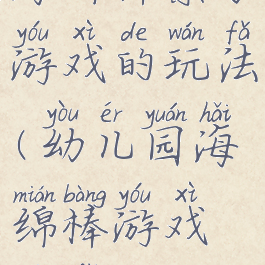 yóu xì de wán fǎ
游戏的玩法
yòu ér yuán hǎi
(幼儿园海
mián bàng yóu xì
绵棒游戏